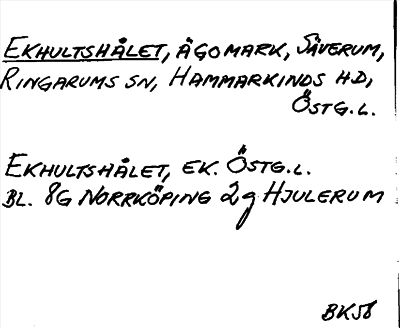 EKHULTSHÅLET, ÄGOMARK, SÄVERUM,
RINGARUMS SN, HAMMARKINDS HD,
ÖSTG.L.
EKHULTSHÅLET, EK. ÖSTG.L.
BL. 8G NORRKÖPING 2g HJULERUM
BK58